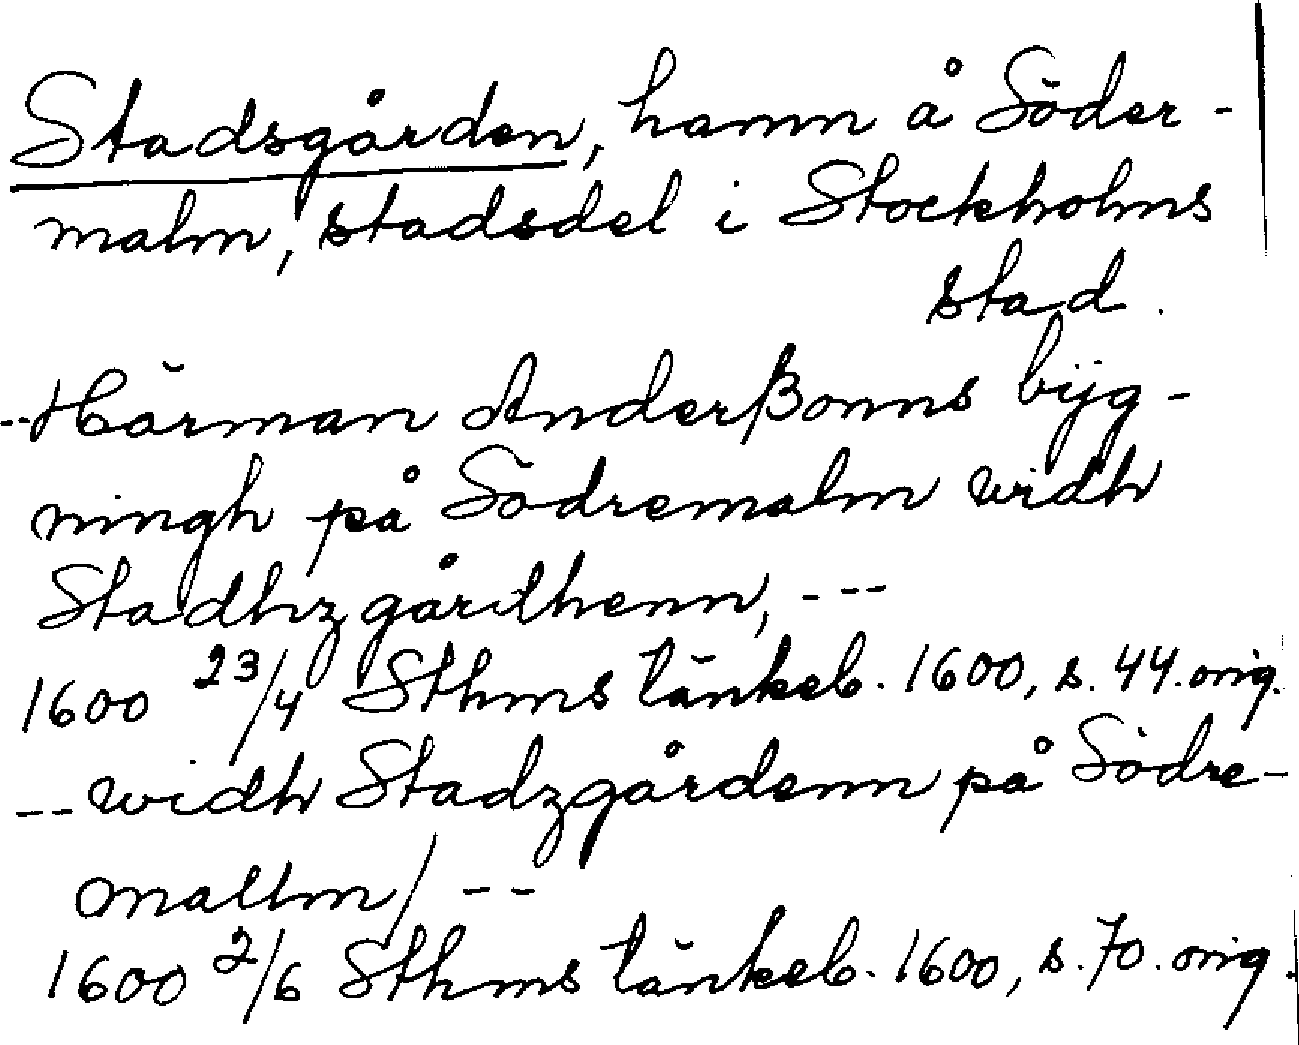 Stadsgården, hamn å Söder-
malm, stadsdel i Stockholms
stad.
--Härman Anderßonns bÿg-
ningh på Södremalm widh
Stadhzgårdhenn, ---
1600 23/4 Sthms tänkeb. 1600, s. 44. orig.
--widh Stadzgårdenn på Södre-
mallm/ --
1600 2/6 Sthms tänkeb. 1600, s. 70. orig.